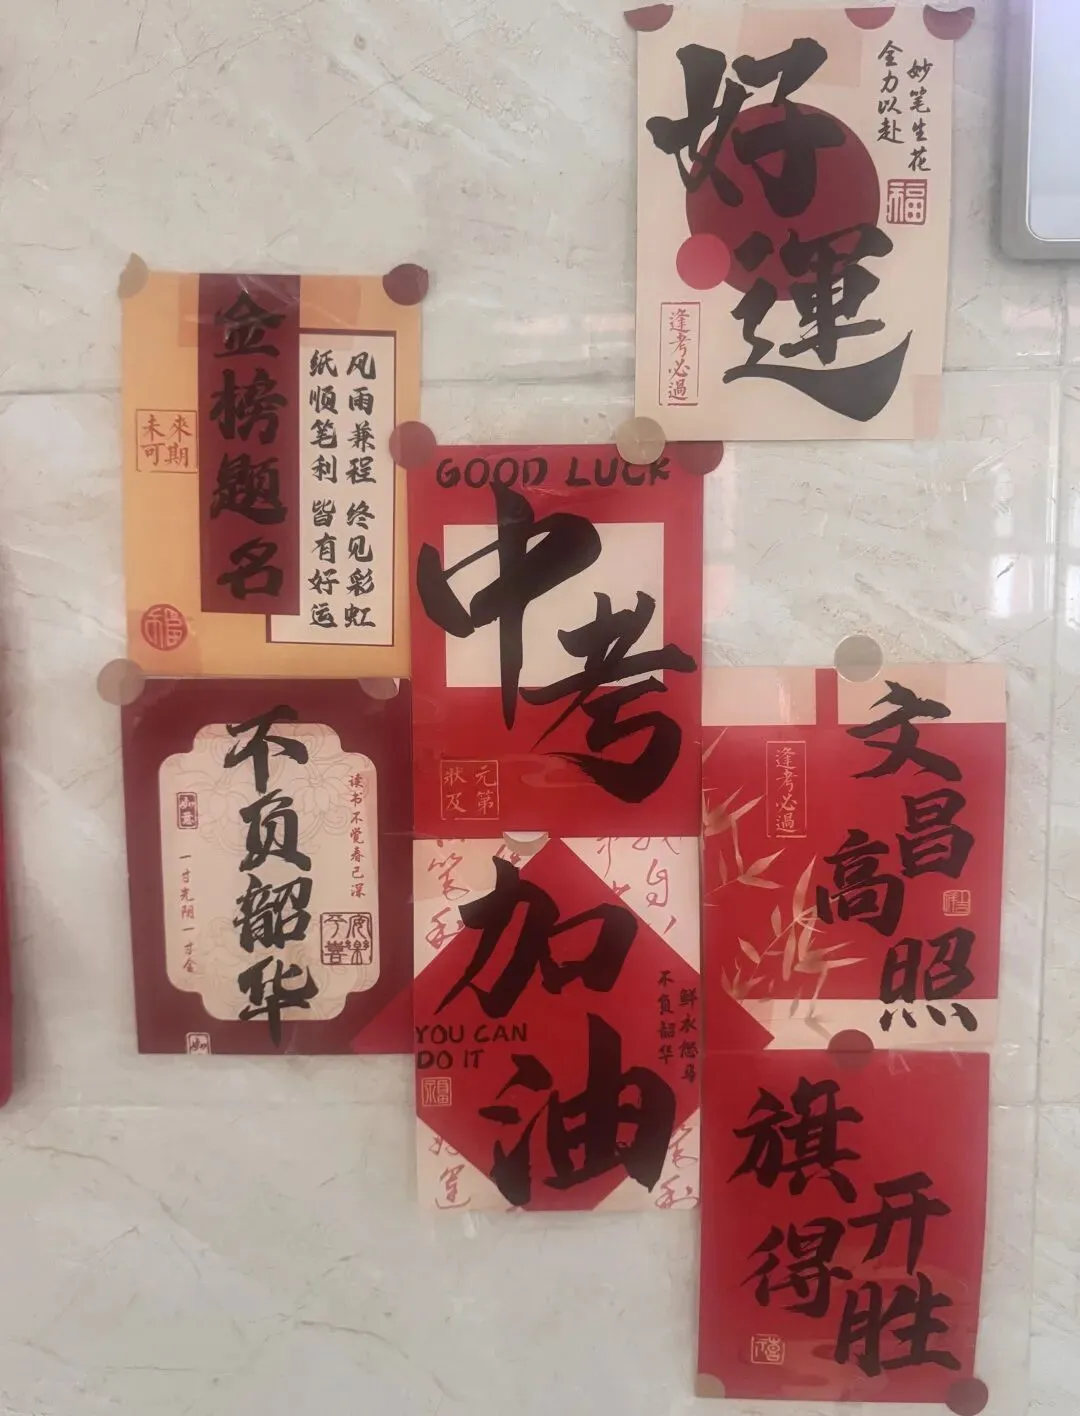 好運
全力以赴
妙笔生花
福
逢考必過
金榜题名
風雨兼程 终见彩虹
纸顺笔利 皆有好运
未來可期
福
GOOD LUCK
中考
状元及第
不负韶华
读书不觉春已深
一寸光阴一寸金
如意
平安喜樂
文昌高照
逢考必過
加油
YOU CAN
DO IT
鲜衣怒马
不负韶华
福
好運
旗开得胜
禧